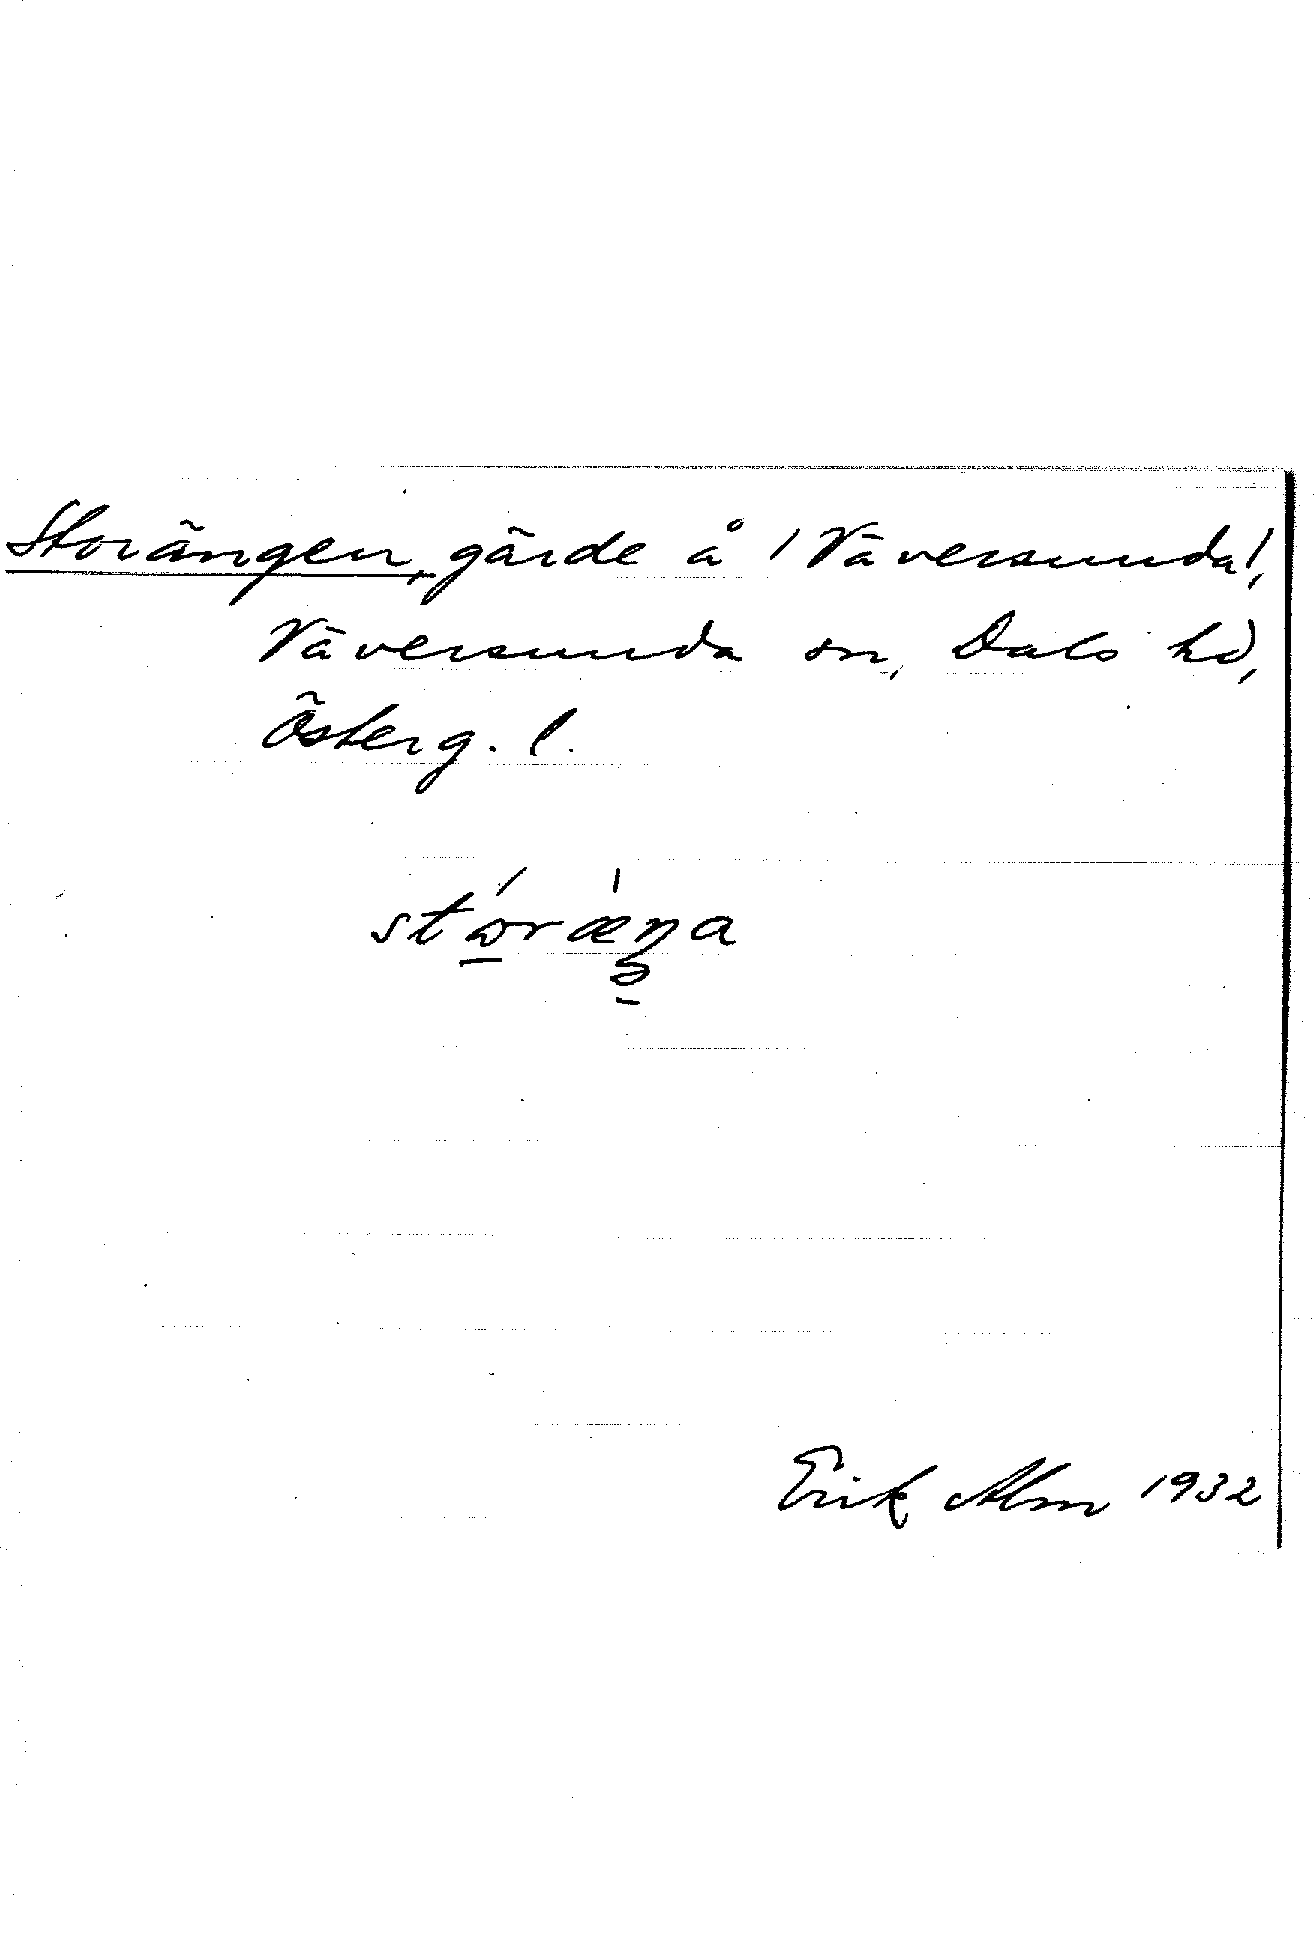 Storängen, gärde å /Väversunda/,
Väversunda sn, Dals hd,
Österg. l.
stɷ́ræ̀ŋa
Erik Alm 1932